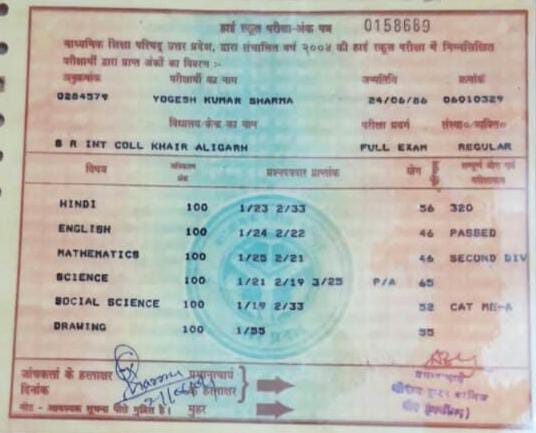 हाई स्कूल परीक्षा-अंक पत्र 0158689
माध्यमिक शिक्षा परिषद् उत्तर प्रदेश, द्वारा संचालित वर्ष २००४ की हाई स्कूल परीक्षा में निम्नलिखित
परीक्षार्थी द्वारा प्राप्त अंकों का विवरण :-
अनुक्रमांक परीक्षार्थी का नाम जन्मतिथि क्रमांक
0284579 YOGESH KUMAR SHARMA 24/06/86 06010329
विद्यालय/केन्द्र का नाम परीक्षा प्रवर्ग संस्था०/व्यक्ति०
B R INT COLL KHAIR ALIGARH FULL EXAM REGULAR
विषय अधिकतम अंक प्रश्नपत्रवार प्राप्तांक योग सम्पूर्ण योग एवं परीक्षाफल
HINDI 100 1/23 2/33 56 320
ENGLISH 100 1/24 2/22 46 PASSED
MATHEMATICS 100 1/25 2/21 46 SECOND DIV
SCIENCE 100 1/21 2/19 3/25 P/A 65
SOCIAL SCIENCE 100 1/19 2/33 52 CAT ME-A
DRAWING 100 1/55 55
जांचकर्ता के हस्ताक्षर प्रधानाचार्य
दिनांक के हस्ताक्षर
नोट - आवश्यक सूचना पीछे मुद्रित है। मुहर
प्रधानाचार्य